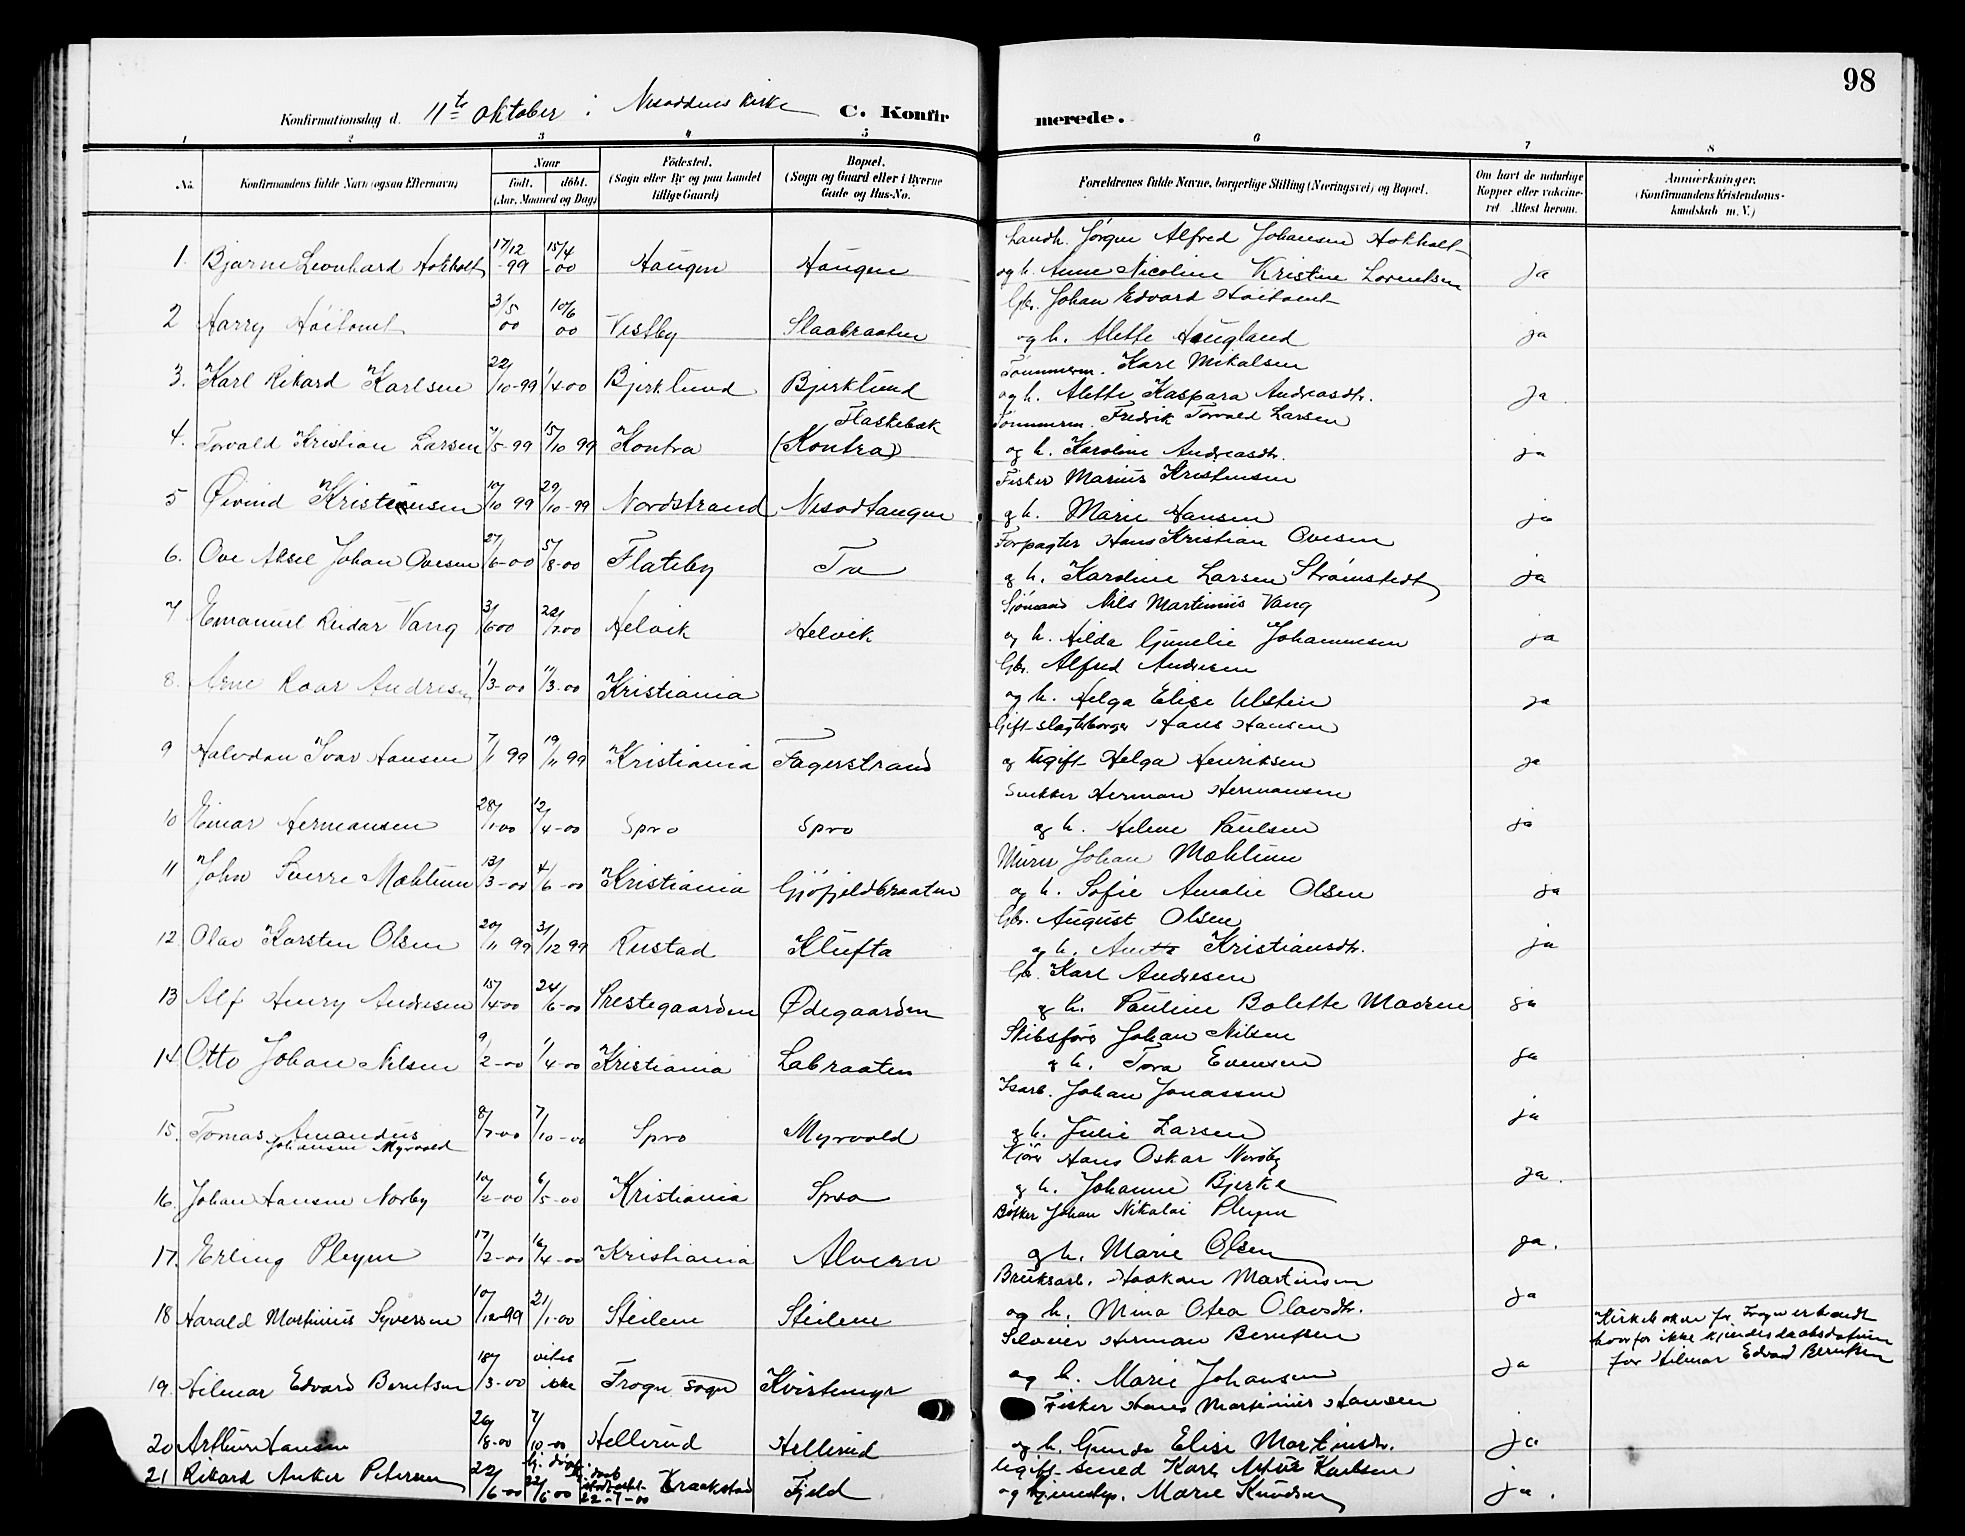 98
Konfirmationsdag d. 11te Oktober i Nesoddens Kirke C. Konfirmerede.
1 2 3 4 5 6 7 8
No. Konfirmandens fulde Navn (ogsaa Efternavn) Naar født. døbt. (Aar, Maaned og Dag) Fødested. (Sogn eller By og paa Landet tillige Gaard) Bopæl. (Sogn og Gaard eller i Byerne Gade og Hus-No. Forældrenes fulde Navne, borgerlige Stilling (Næringsvei) og Bopæl. Om havt de naturlige Kopper eller vakcineret Attest herom. Anmærkninger. (Konfirmandens Kristendomskundskab m. V.)
Landh. Jørgen Alfred Johansen Hokholt
1. Bjarne Leonhard Hokholt 17/12-99 15/4-00 Haugen Haugen og h. Anne Nicoline Kristine Lorentsen ja
Gbr. Johan Edvard Høitomt
2 Harry Høitomt 3/5 00 10/6 00 Vestby Slaabraaten og h. Alette Haugland ja
Tømmerm. Karl Mikalsen
3. Karl Rikard Karlsen 22/10-99 1/4-00 Bjerklund Bjerklund og h. Alette Kaspara Andreasdtr. ja
Tømmerm. Fredrik Torvald Larsen
4. Torvald Kristian Larsen /5-99 15/10 99 Kontra Flaskebæk (Kontra) og h. Karoline Andreasdtr. ja
Fisker Marius Kristensen
5 Øivind Kristensen 10/10 99 29/10-99 Nordstrand Nesodtangen og h. Marie Hansen ja
Forpagter Hans Kristian Ovesen
6. Ove Aksel Johan Ovesen 27/6-00 5/8-00 Flateby Tra og h. Karoline Larsen Strømstedt ja
Sjømand Nils Martinius Vang
7 Emanuel Reidar Vang 3/6-00 22/7-00 Helvik Helvik og h. Hilda Gunelie Johannesen ja
Gbr. Alfred Andresen
8. Arne Roar Andresen 1/3-00 11/3-00 Kristiania og h. Helga Elise Ulstein ja
Gift slagteborger Hans Hansen
9 Halvdan Ivar Hansen 7/1 99 19/11 99 Kristiania Fagerstrand og ugift Helga Henriksen ja
Snekker Herman Hermansen
10 Einar Hermansen 28/1-00 12/4-00 Spro Spro og h. Helene Paulsen ja
Murer Johan Mæhlum
11 John Sverre Mæhlum 13/3-00 4/6-00 Kristiania Gjøfjeldbraaten og h. Sofie Amalie Olsen ja
Gbr. August Olsen
12 Olav Karsten Olsen 20/11 99 31/12 99 Rustad Klufta og h. Anette Kristiansdtr. ja
Gbr. Karl Andresen
13 Alf Henry Andresen 15/4-00 24/6-00 Prestegaarden Ødegaarden og h. Pauline Bolette Madsen ja
Skibsfører Johan Nilsen
14 Otto Johan Nilsen 9/2-00 1/4-00 Kristiania Labraaten og h. Tora Evensen ja
Isarb. Johan Jonassen
15. Tomas Amandus Johansen Myrvold 8/7-00 7/10-00 Spro Myrvold og h. Julie Larsen ja
Kjører Hans Oskar Nordby
16. Johan Hansen Norby 10/2-00 6/5-00 Kristiania Spro og h. Johanne Bjerke ja.
Bøkker Johan Nikolai Pleym
17. Erling Pleym 17/2-00 16/4-00 Kristiania Alvern og h. Marie Olsen ja.
Bruksarb. Haakon Martinsen
18 Harald Martinius Syversen 10/12-99 21/1-00 Steilene Steilene og h. Mina Otea Olavsdtr. ja
Kirkeboken for Frogn er brændt hvorfor ikke kjendes daabsdatum for Hilmar Edvard Berntsen
Slover Herman Berntsen
19. Hilmar Edvard Berntsen 18/3-00 vites ikke Frogn sogn Kvistemyr og h. Marie Johansen ja
Fisker Hans Martinius Hansen
20 Arthur Hansen 26/8-00 7/10-00 Hellerud Hellerud og h. Gunda Elise Martinsdtr. ja
Ugift smed Karl Artur Karlsen
21 Rikard Anker Petersen 22/6-00 22/6-00 22-7-00 Kraakstad Fjeld og tjenestep. Marie Knudsen ja.